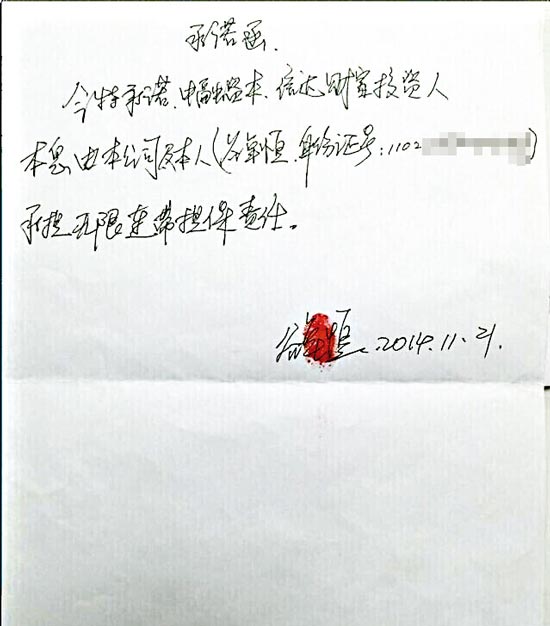 承诺函.
今特承诺、中融资本、信达财富投资人
本息由本公司及本人(谷军恒、身份证号:1102
承担无限连带担保责任。
谷 恒、2014.11.21.